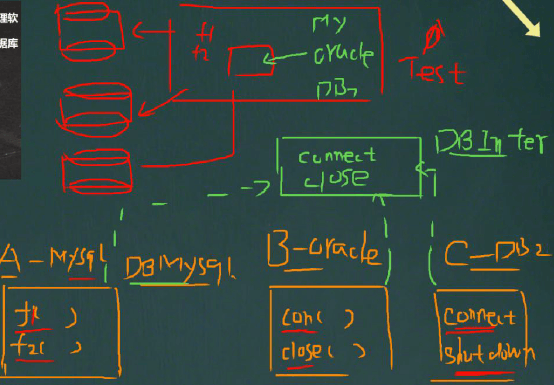 理软
据库
f1
f2
My
oracle
DB2
Test
connect
close
DBInter
A-Mysql
DBMysql
B-oracle
C-DB2
f1( )
f2( )
con( )
close( )
connect
shutdown